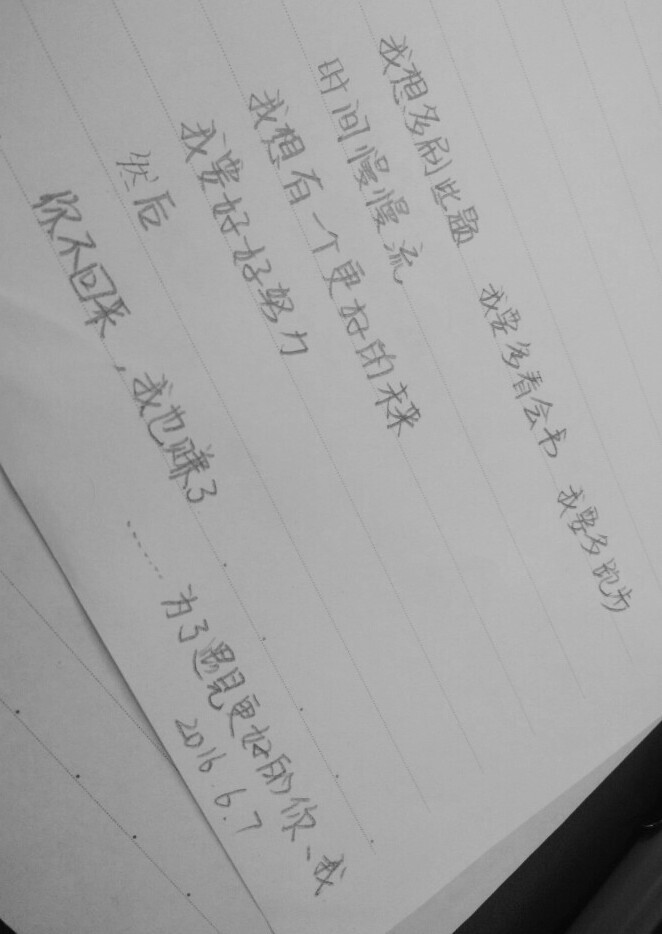 我想多刷些题 我要多看会书 我要多跑步
时间慢慢流
我想有一个更好的未来
我要好好努力
然后
你不回来，我也赚了
…… 为了遇见更好的你、我
2016.6.7